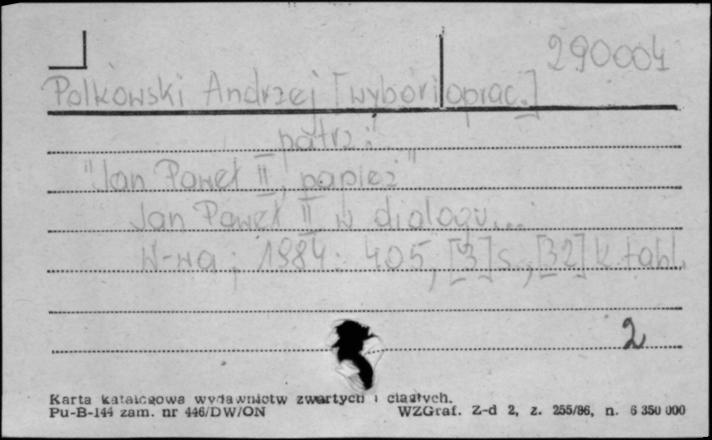 290004
Polkowski Andrzej [wybór i oprac.]
patrz:
"Jan Paweł II, papież"
Jan Paweł II w dialogu...
W-wa ; 1984. 405, [3] s., [32] k. tabl.
2
Karta katalogowa wydawnictw zwartych i ciągłych.
Pu-B-144 zam. nr 446/DW/ON WZGraf. Z-d 2, z. 255/86, n. 6 350 000